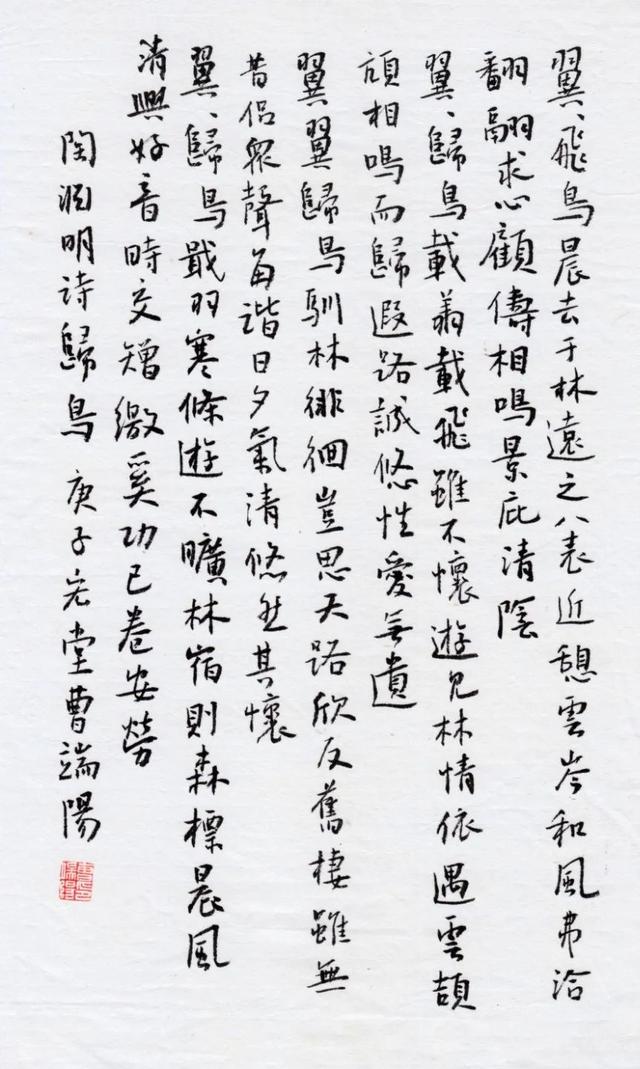 翼、飛鳥晨去于林遠之八表近憩雲岑和風弗洽
翻翮求心顧儔相鳴景庇清陰
翼、歸鳥載翔載飛雖不懷遊見林情依遇雲頡
頏相鳴而歸遐路誠悠性愛無遺
翼翼歸鳥馴林徘徊豈思天路欣反舊棲雖無
昔侶眾聲每諧日夕氣清悠然其懷
翼、歸鳥戢羽寒條遊不曠林宿則森標晨風
清興好音時交矰繳奚功已卷安勞
陶淵明詩歸鳥 庚子宏堂曹端陽